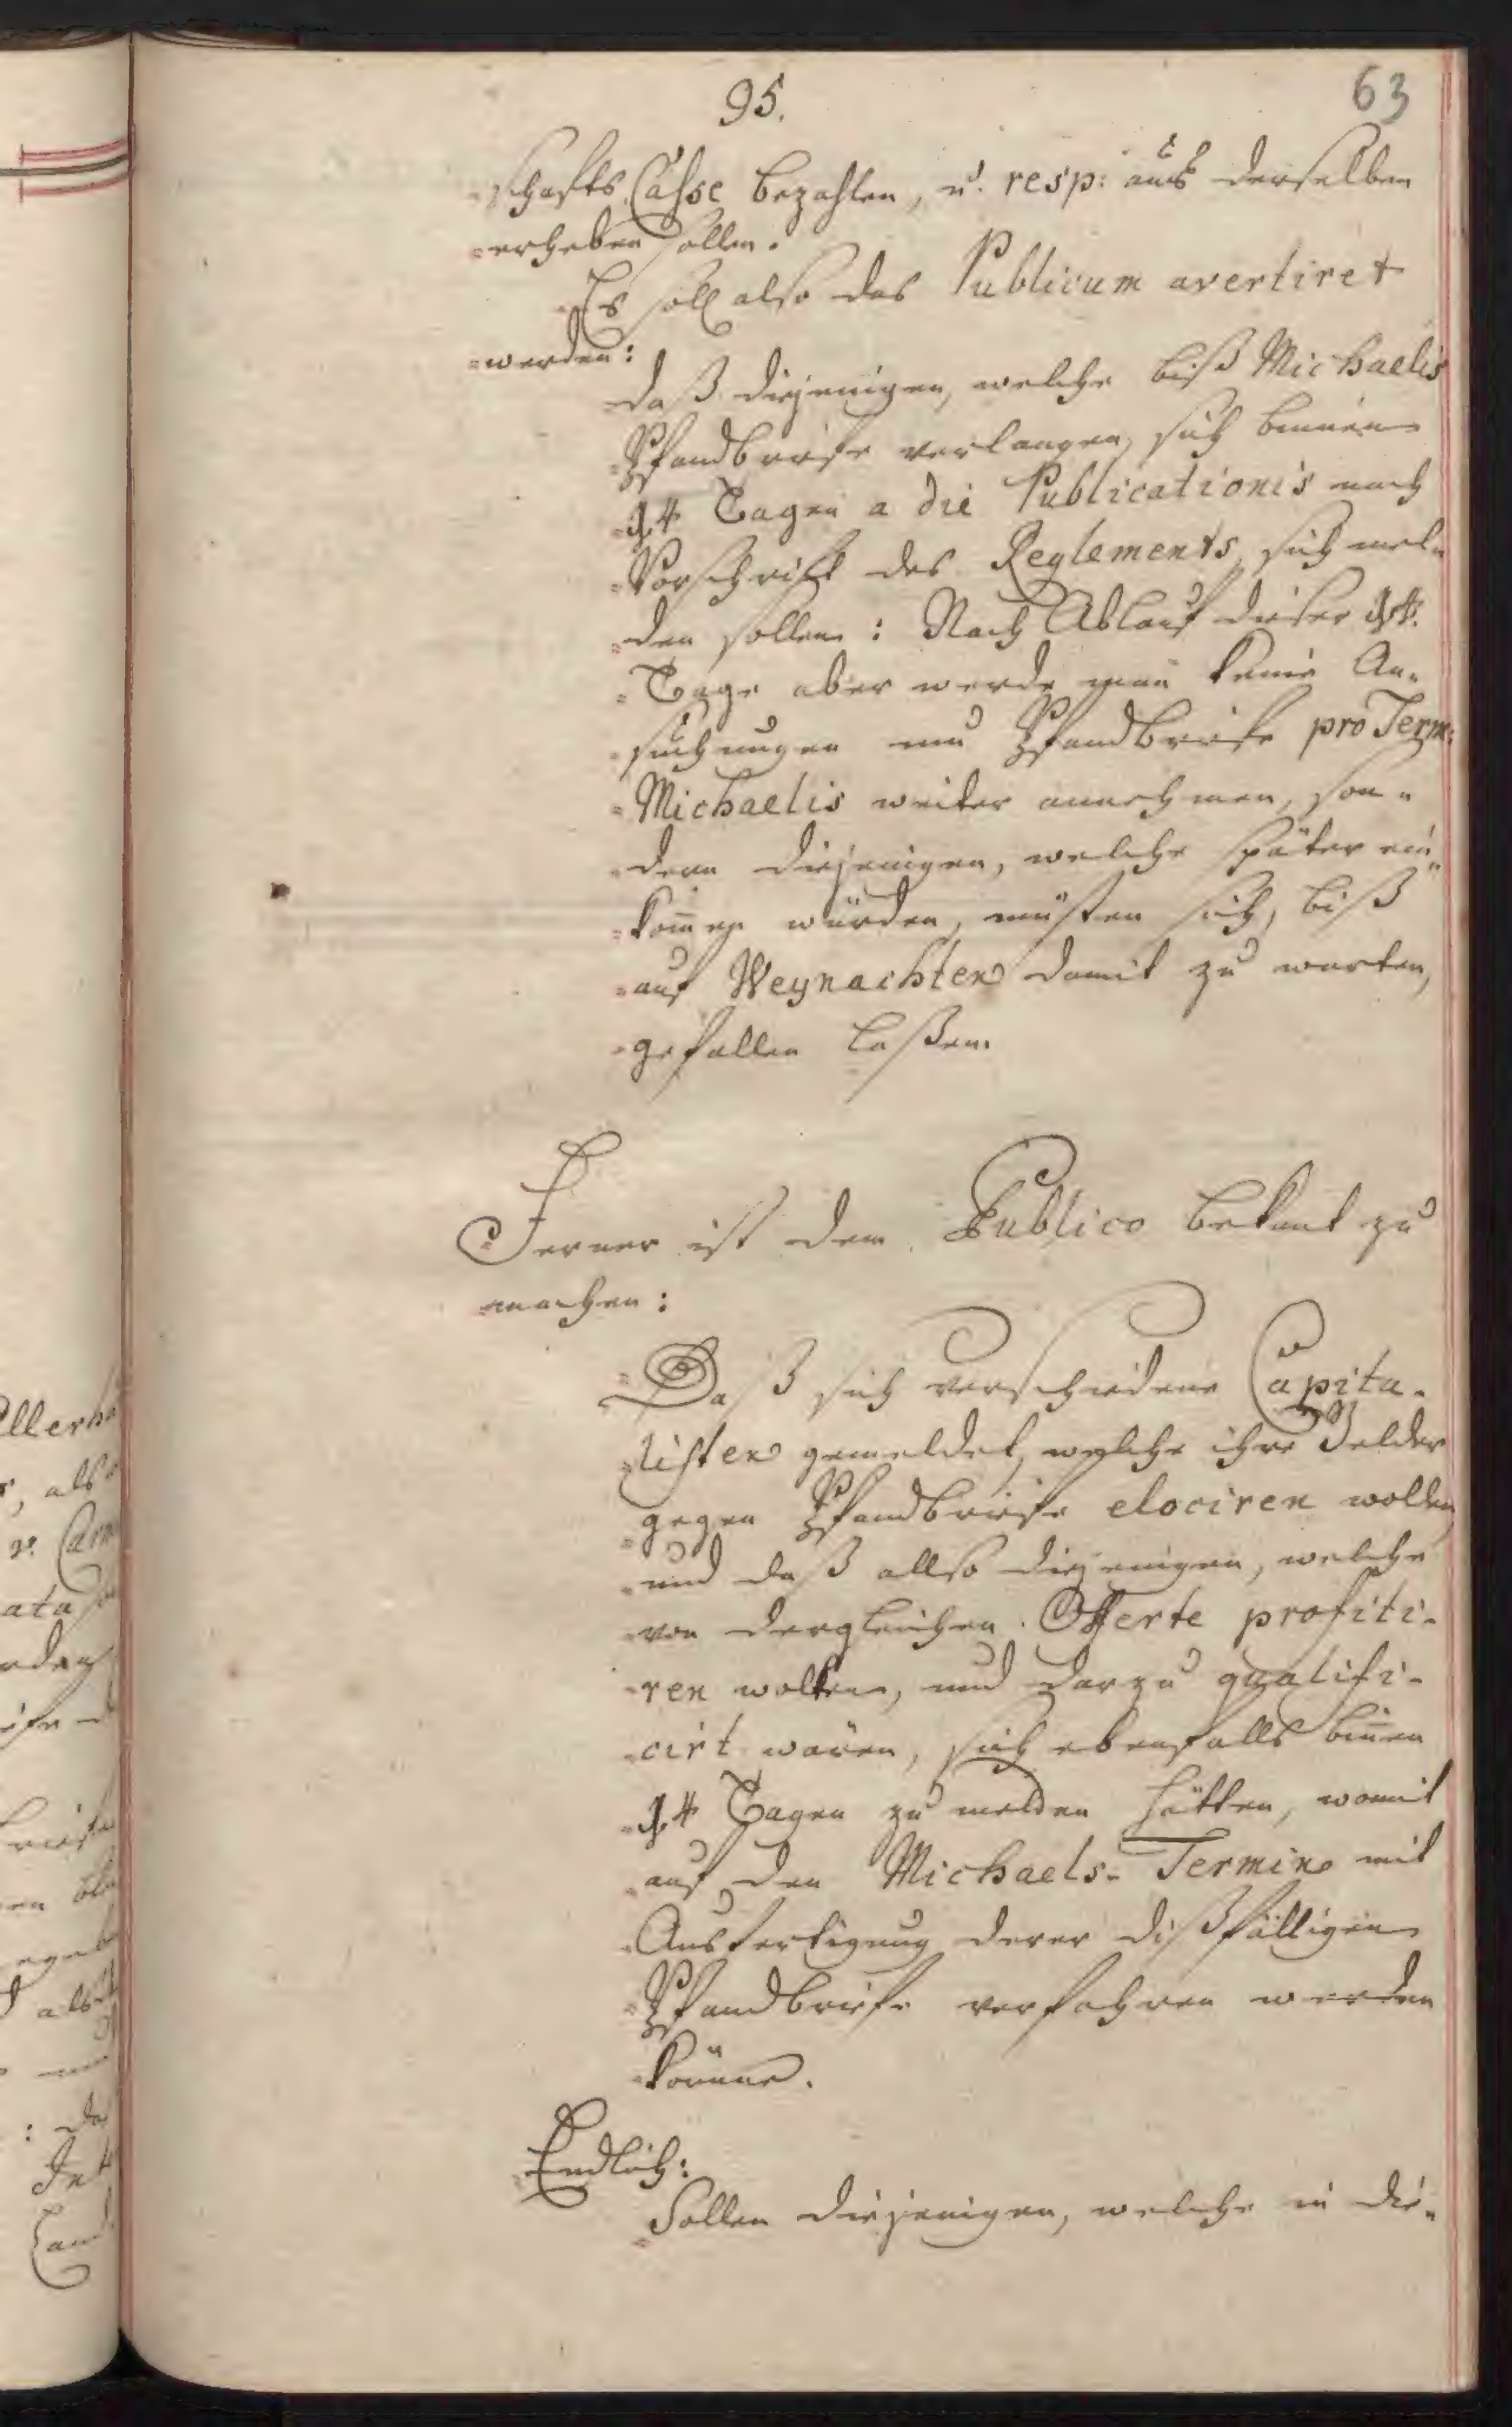 95.
63
schafts Casse bezahlen, u. resp: aus derselben
erheben sollen.
Es soll also das Publicum avertiret
werden:
daß diejenigen, welche biß Michaelis
Pfandbriefe verlangen, sich binnen
14 Tagen a die Publicationis nach
Vorschrifft des Reglements, sich mel-
den sollen: Nach Ablauf dieser 14.
Tage aber werde man keine An-
suchungen um Pfandbriefe pro Term:
Michaelis weiter annehmen, son-
dern diejenigen, welche später ein-
kom̄en würden, müsten sich, biß
auf Weynachten damit zu warten,
gefallen laßen.
Ferner ist dem Publico bekant zu
machen:
Daß sich verschiedene Capita-
listen gemeldet, welche ihre Gelder
gegen Pfandbriefe elociren wolten
und daß allso diejenigen, welche
von dergleichen Offerte profiti-
ren wolten, und darzu qualifi-
cirt wären, sich ebenfalls bin̄en
14 Tagen zu melden hätten, womit
auf den Michaels-Termin mit
Ausfertigung derer dißfälligen
Pfandbriefe verfahren werden
könne.
Endlich:
Sollen diejenigen, welche in die-